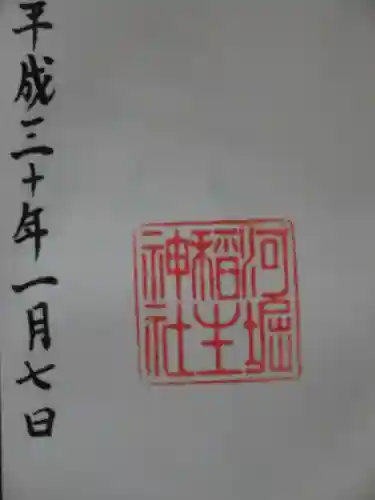 河堀
稲生
神社
平成三十年一月七日